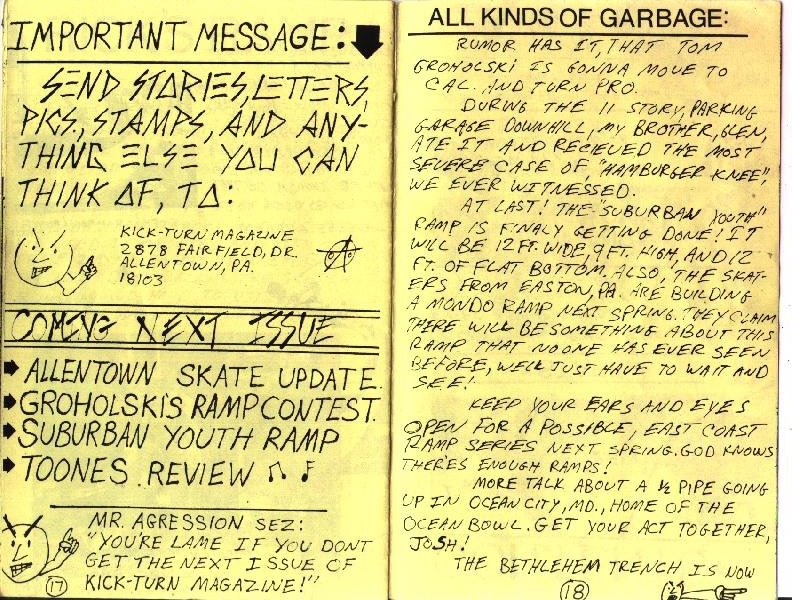 IMPORTANT MESSAGE:
SEND STORIES, LETTERS,
PICS., STAMPS, AND ANY-
THING ELSE YOU CAN
THINK OF, TO:
KICK-TURN MAGAZINE
2878 FAIRFIELD, DR.
ALLENTOWN, PA.
18103
COMING NEXT ISSUE
ALLENTOWN SKATE UPDATE.
GROHOLSKI'S RAMP CONTEST.
SUBURBAN YOUTH RAMP
TOONES REVIEW
MR. AGRESSION SEZ:
"YOU'RE LAME IF YOU DONT
GET THE NEXT ISSUE OF
KICK-TURN MAGAZINE!"
17
ALL KINDS OF GARBAGE:
RUMOR HAS IT, THAT TOM
GROHOLSKI IS GONNA MOVE TO
CAL. AND TURN PRO.
DURING THE 11 STORY, PARKING
GARAGE DOWNHILL, MY BROTHER, GLEN,
ATE IT AND RECIEVED THE MOST
SEVERE CASE OF, "HAMBURGER KNEE",
WE EVER WITNESSED.
AT LAST! THE "SUBURBAN YOUTH"
RAMP IS FINALY GETTING DONE! IT
WILL BE 12 FT. WIDE, 9 FT. HIGH, AND 12
FT. OF FLAT BOTTOM. ALSO, THE SKAT-
ERS FROM EASTON, PA. ARE BUILDING
A MONDO RAMP NEXT SPRING. THEY CLAIM
THERE WILL BE SOMETHING ABOUT THIS
RAMP THAT NO ONE HAS EVER SEEN
BEFORE, WE'LL JUST HAVE TO WAIT AND
SEE!
KEEP YOUR EARS AND EYES
OPEN FOR A POSSIBLE, EAST COAST
RAMP SERIES NEXT SPRING. GOD KNOWS
THERE'S ENOUGH RAMPS!
MORE TALK ABOUT A ½ PIPE GOING
UP IN OCEAN CITY, MD., HOME OF THE
OCEAN BOWL. GET YOUR ACT TOGETHER,
JOSH!
THE BETHLEHEM TRENCH IS NOW
18